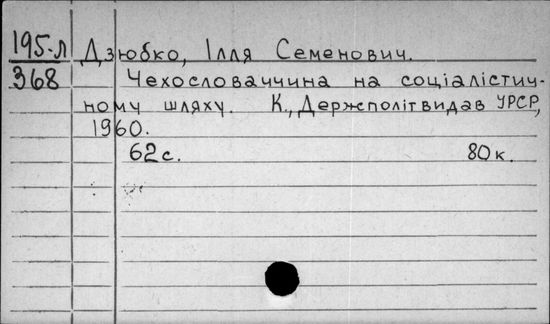 195-л Дзюбко, Ілля Семенович.
368 Чехословаччина на соціалістич-
ному шляху. К., Держполітвидав УРСР,
1960.
62 с. 80 к.